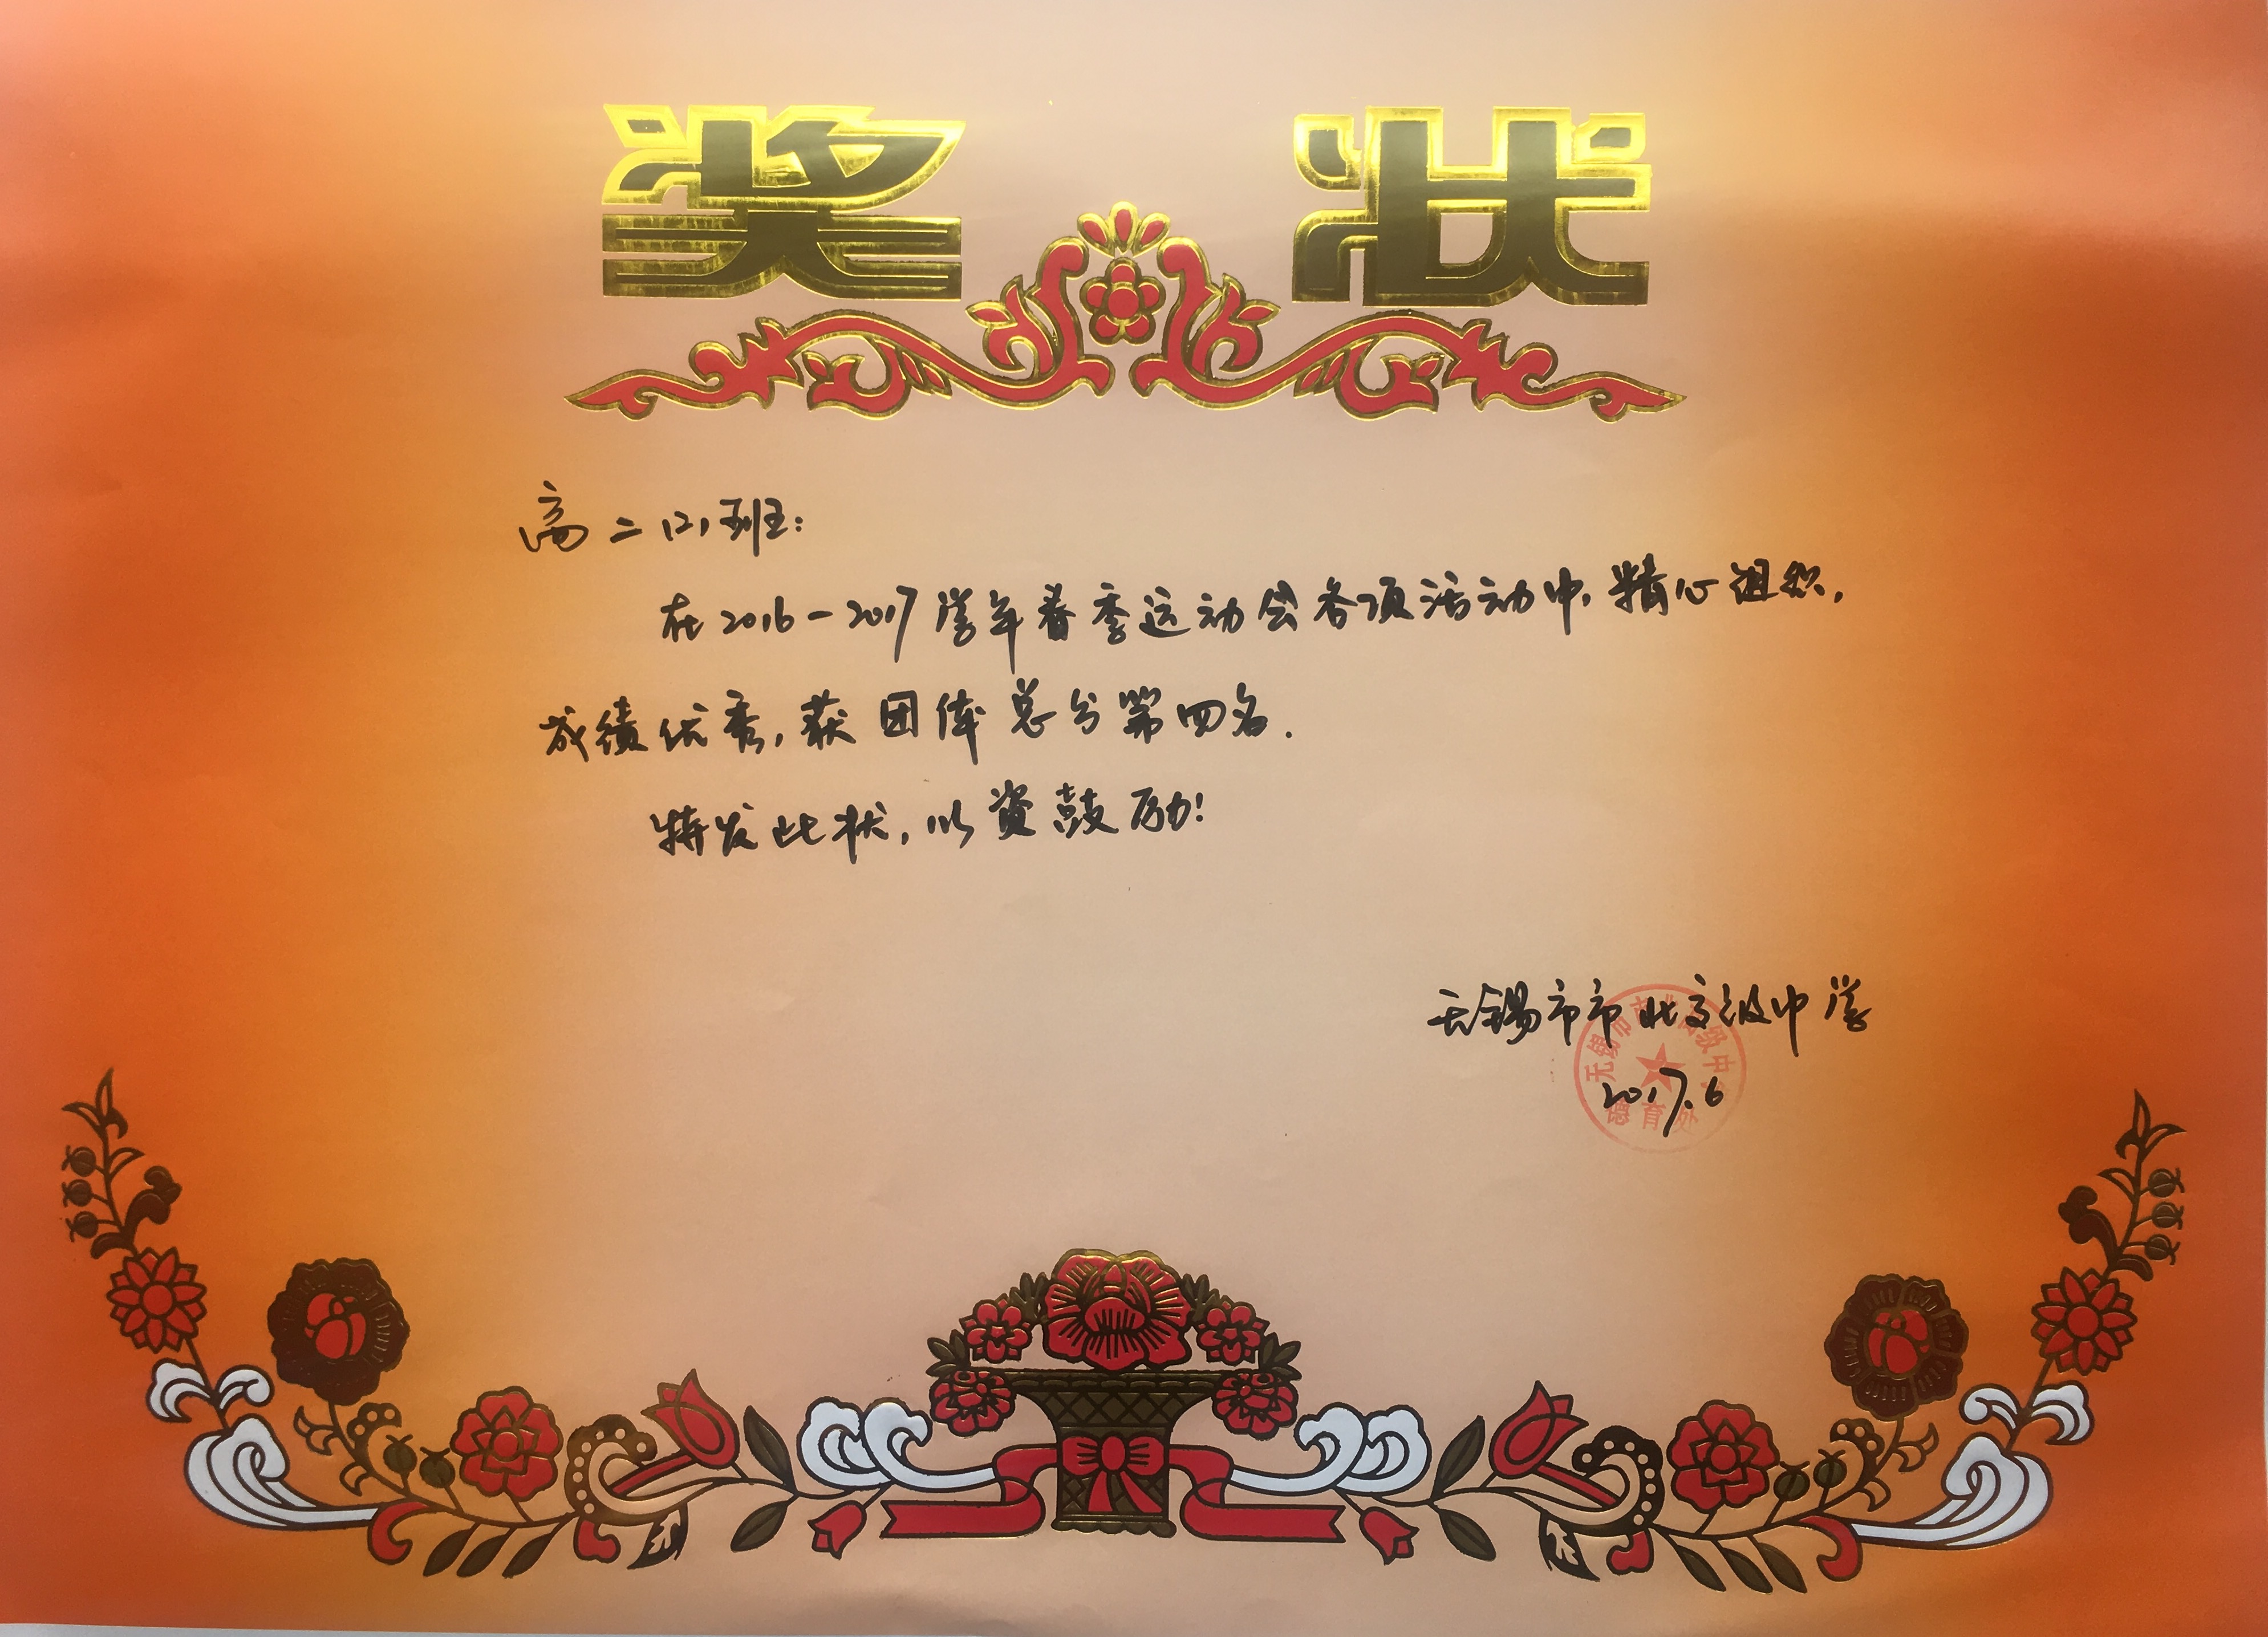 奖状
高二(2)班:
在2016-2017学年春季运动会各项活动中,精心组织,
成绩优秀,获团体总分第四名.
特发此状,以资鼓励!
无锡市市北高级中学
2017.6
无锡市市北高级中学
德育处